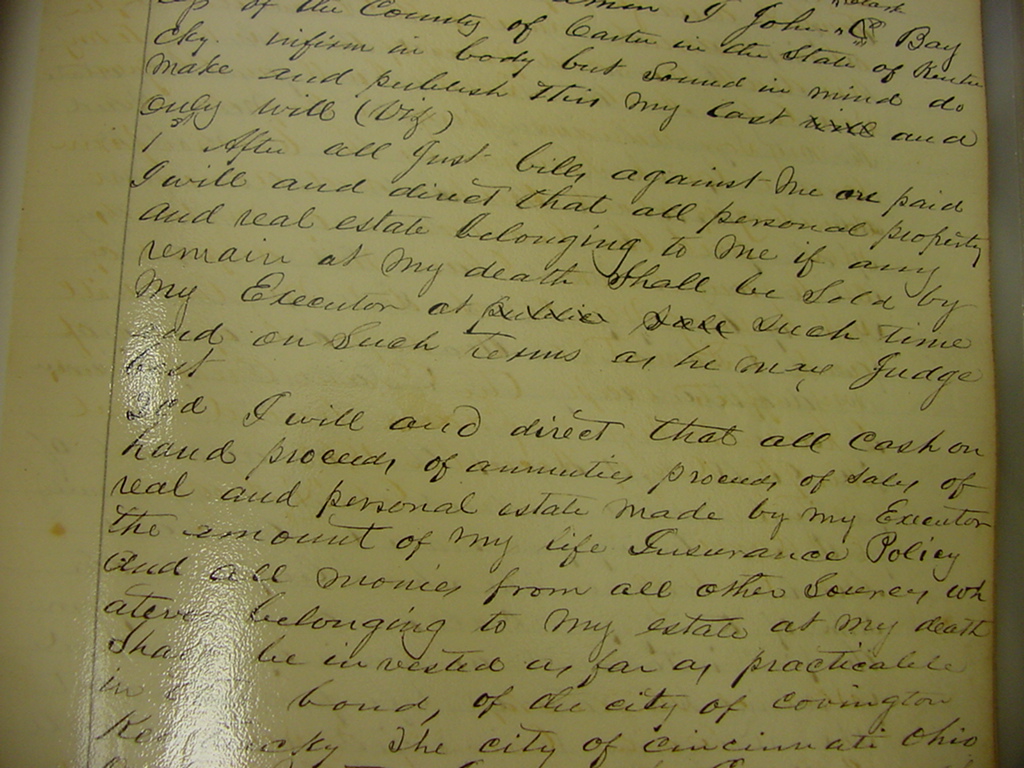 of the County of Carter in the State of Kentu
cky. infirm in body but Sound in mind do
make and publish this my last will and
only will (Viz)
1st After all Just bills against me are paid
I will and direct that all personal property
and real estate belonging to me if any
remain at my death Shall be Sold by
my Executor at public Sale Such time
and on Such terms as he may Judge
best
2nd I will and direct that all Cash on
hand proceeds of annuities proceeds of Sales of
real and personal estate made by my Executor
the amount of my life Insurance Policy
and all monies from all other Sources wh
atever belonging to my estate at my death
Shall be invested as far as practicable
in bonds of the city of Covington
Kentucky The city of Cincinnati Ohio